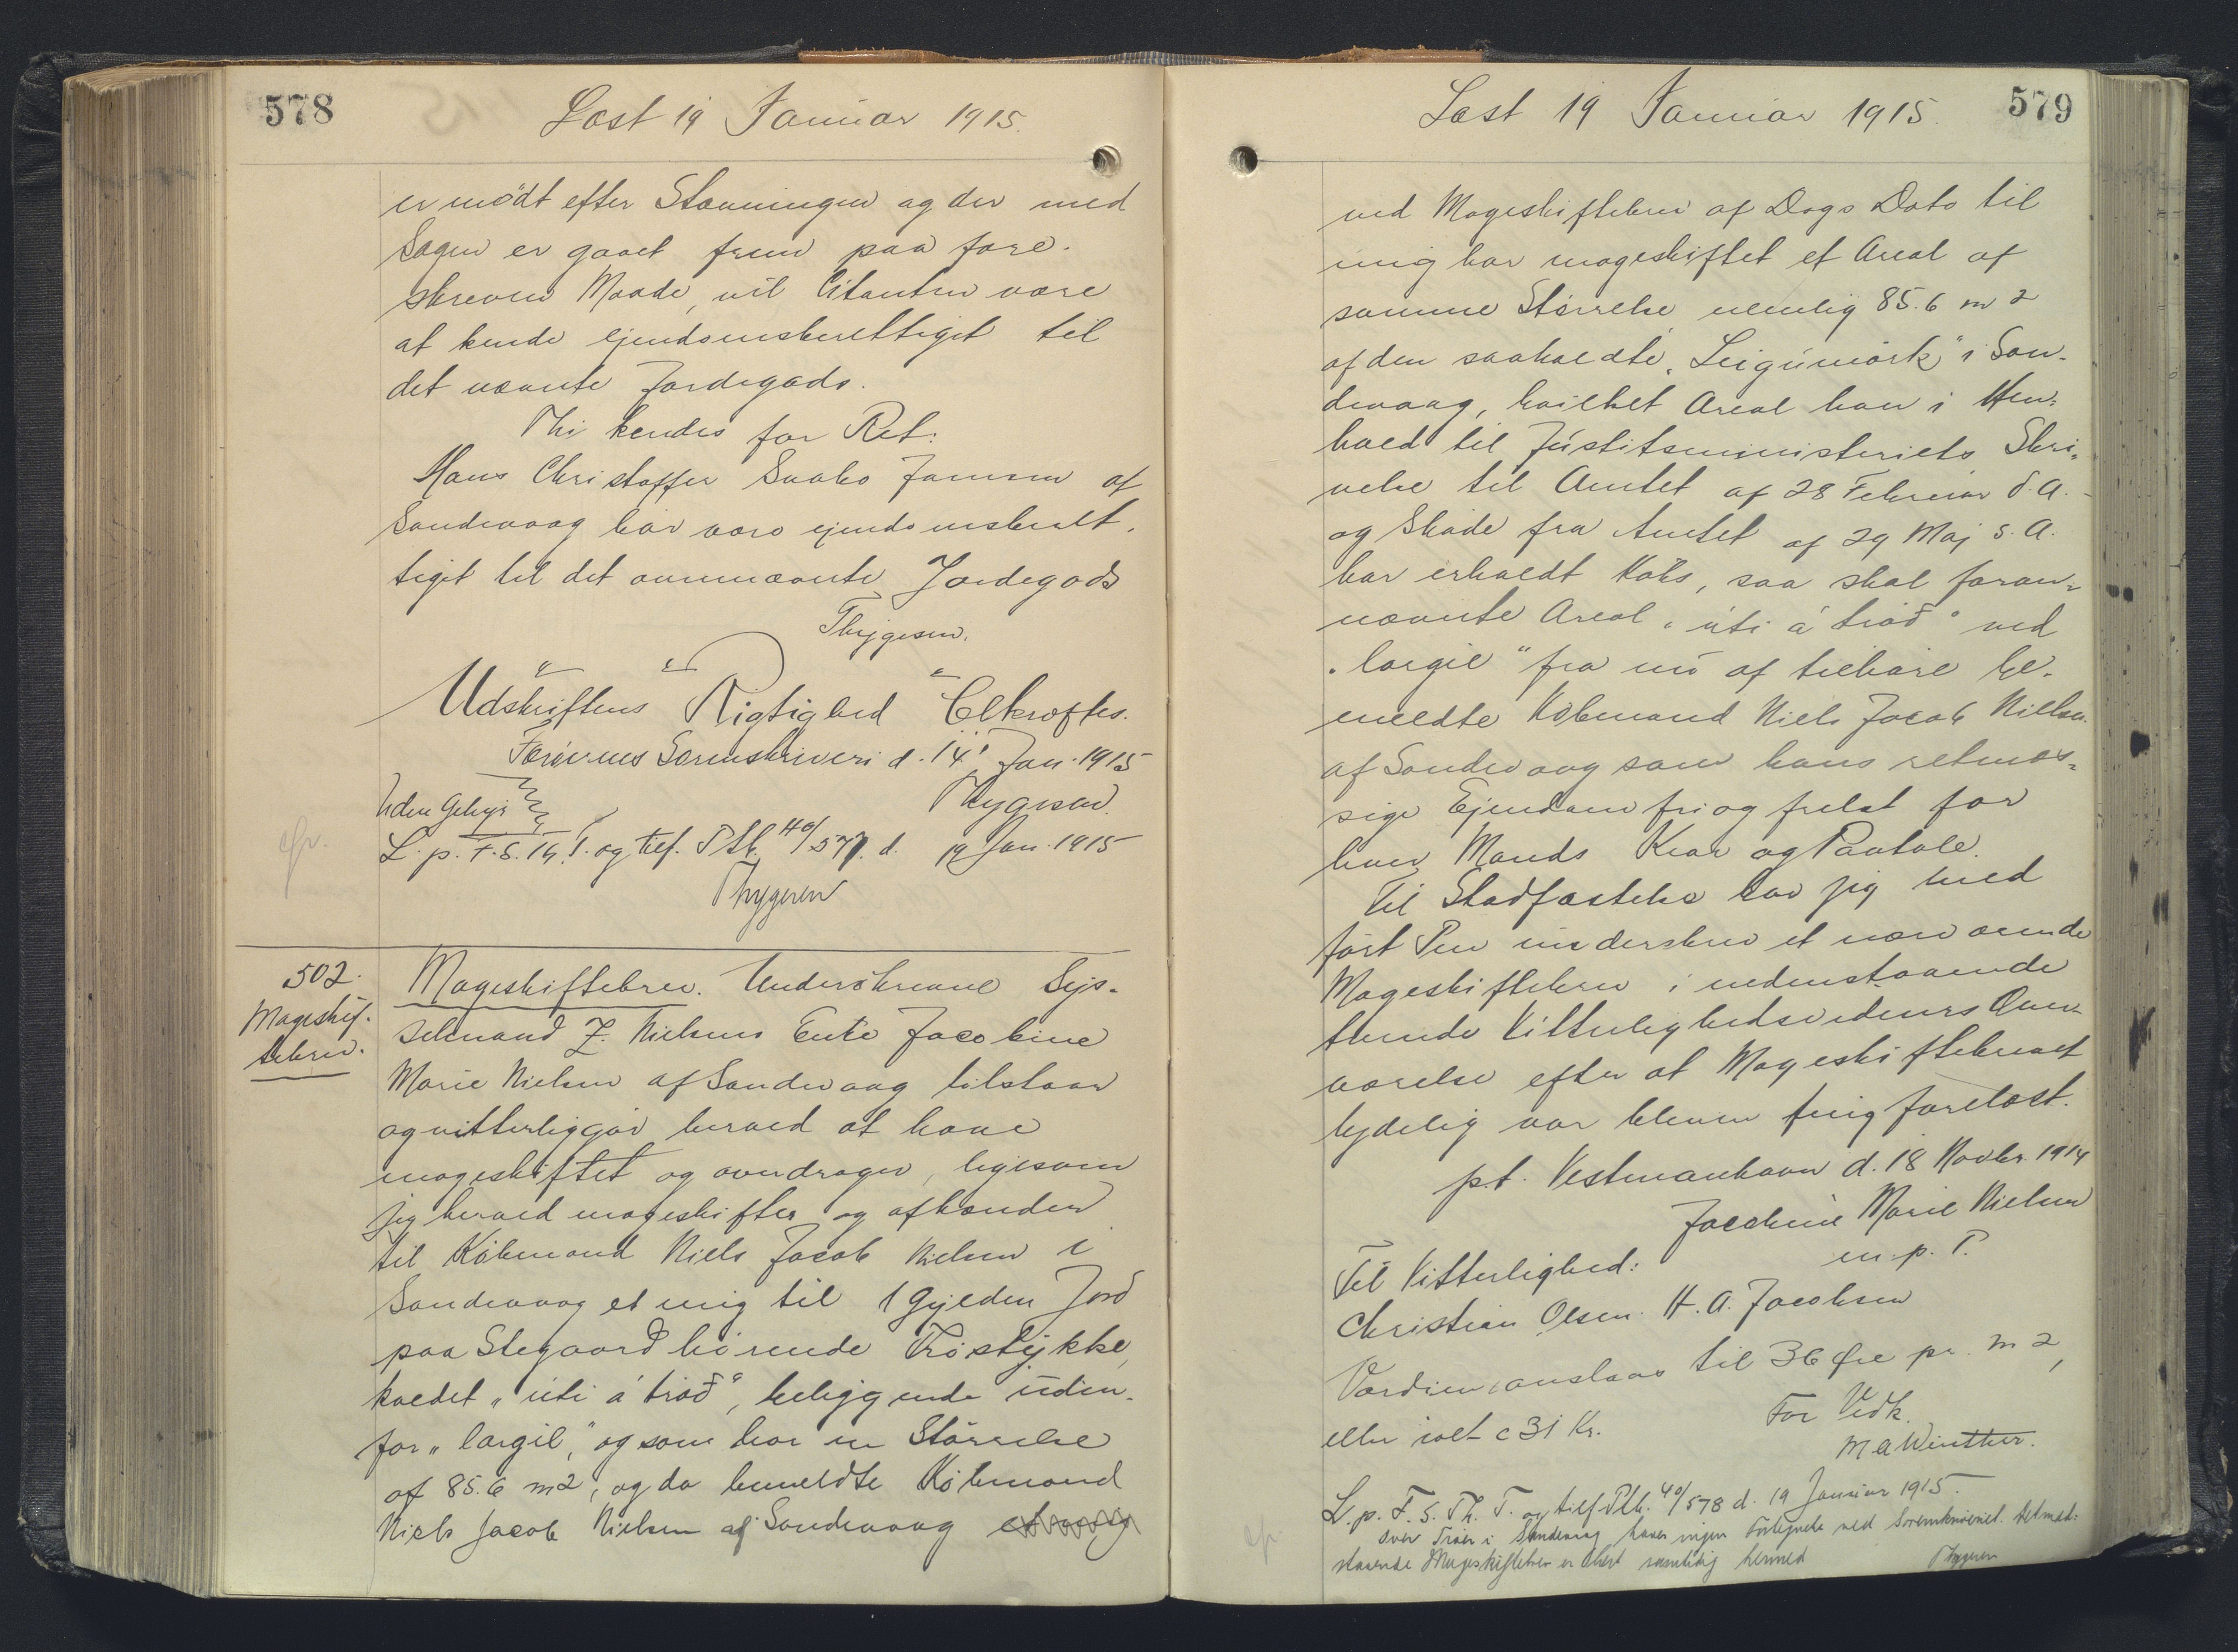 578
Læst 19 Januar 1915.
er mödt efter Stævningen og der med
Sagen er gaaet frem paa fore-
skreven Maade, vil Citanten være
at kende ejendomsberettiget til
det nævnte Jordegods.
Thi kendes for Ret:
Hans Christoffer Saabo Jansen af
Sandevaag bör være ejendomsberet-
tiget til det ovennævnte Jordegods
Thygesen.
Udskriftens Rigtighed bekræftes.
Færöernes Sorenskriveri d. 14' Jan. 1915
Uden Gebyr
Thygesen.
L. p. F. S. Th. T. og tilf. Ptb. 40/577. d. 19 Jan. 1915
Thygesen
cfr.
502.
Mageskif-
tebrev.
Mageskiftebrev. Underskrevne Sys-
selmand Z. Nielsens Enke Jacobine
Marie Nielsen af Sandevaag tilstaar
og vitterliggör herved at have
mageskiftet og overdraget, ligesom
jeg herved mageskifter og afhænder
til Köbmand Niels Jacob Nielsen i
Sandevaag et mig til 1 Gylden Jord
paa Slegaard hörende Tröstykke,
kaldet „úti á tröð", beliggende uden-
for „lorgil," og som har en Störrelse
af 85.6 m2, og da bemeldte Köbmand
Niels Jacob Nielsen af Sandevaag
579
Læst 19 Januar 1915.
ved Mageskiftebrev af Dags Dato til
mig har mageskiftet et Areal af
samme Störrelse nemlig 85.6 m2
af den saakaldte „Leigumörk" i San-
devaag, hvilket Areal han i Hen-
hold til Justitsministeriets Skri-
velse til Amtet af 28 Februar d. A.
og Sköde fra Amtet af 29 Maj s. A.
har erholdt Köbs, saa skal foran-
nævnte Areal „úti á tröð" ved
„lorgil" fra nu af tilhöre be-
meldte Köbmand Niels Jacob Nielsen
af Sandevaag som hans retmæs-
sige Ejendom fri og frelst for
hver Mands Krav og Paatale.
Til Stadfæstelse har jeg med
fört Pen underskrevet nærværende
Mageskiftebrev i nedenstaaende
tvende Vitterlighedsvidners Over-
værelse efter at Mageskiftebrevet
tydelig var bleven mig forelæst.
p.t. Vestmanhavn d. 18 Novbr. 1914
Jacobine Marie Nielsen
m. p. P.
Til Vitterlighed:
Christian Olsen. H. A. Jacobsen
Værdien anslaas til 36 Øre pr. m2,
eller ialt c 31 Kr.
For Vedk.
M A Winther.
L. p. F. S. Th. T. og tilf. Ptb. 40/578 d. 19 Januar 1915.
Over Tröer i Sandevaag haves ingen Fortegnelse ved Sorenskriveriet. Det mod-
staaende Mageskiftebrev er læst samtidig hermed
Thygesen
cfr